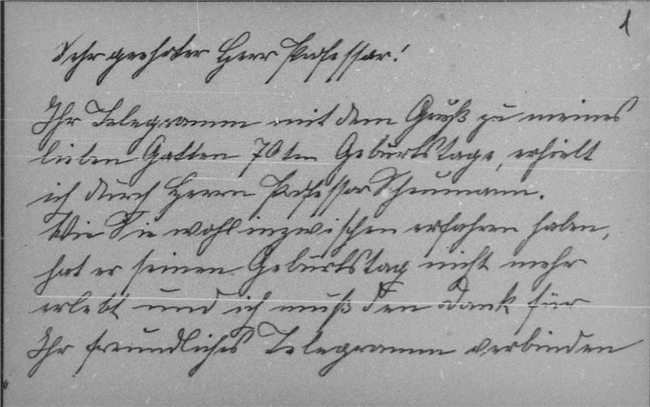 1
Sehr geehrter Herr Professor!
Ihr Telegramm mit dem Gruß zu meines
lieben Gatten 70ten Geburtstage, erhielt
ich durch Herrn Professor Schumann.
Wie Sie wohl inzwischen erfahren haben,
hat er seinen Geburtstag nicht mehr
erlebt und ich muß den Dank für
Ihr freundliches Telegramm verbinden